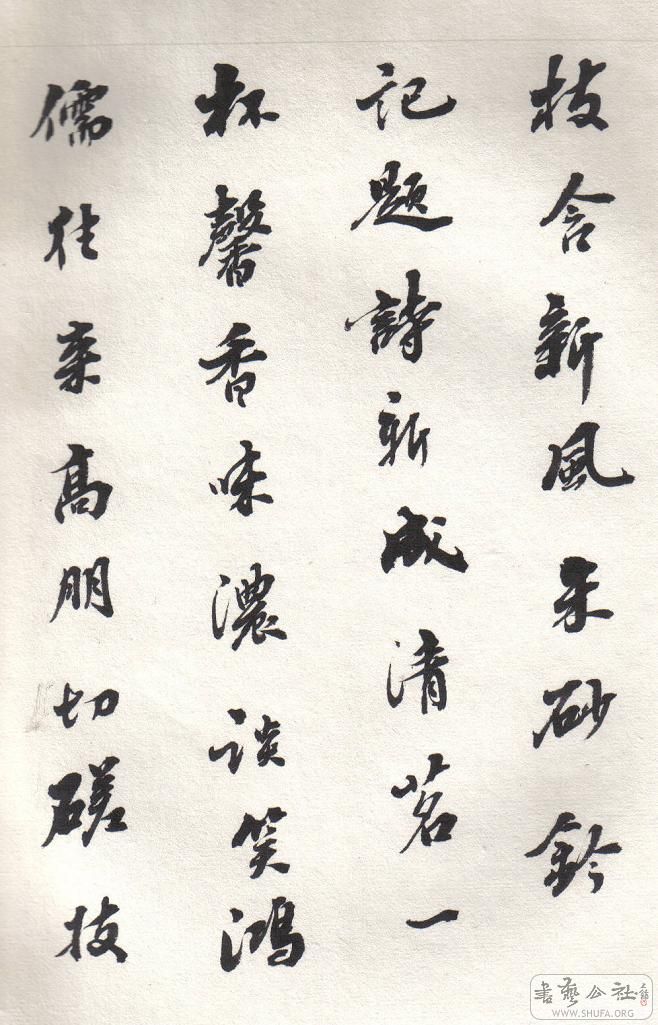 枝含新風朱砂鈐
記題詩新成清茗一
杯馨香味濃談笑鴻
儒往来高朋切磋技
書藝公社
WWW.SHUFA.ORG